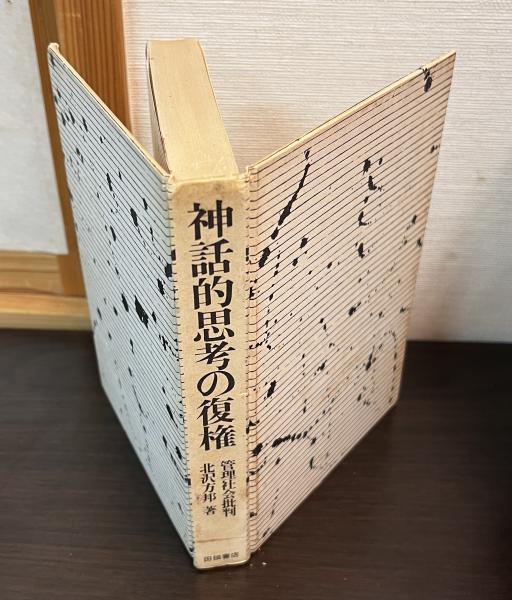 神話的思考の復権
管理社会批判
北沢方邦 著
田畑書店